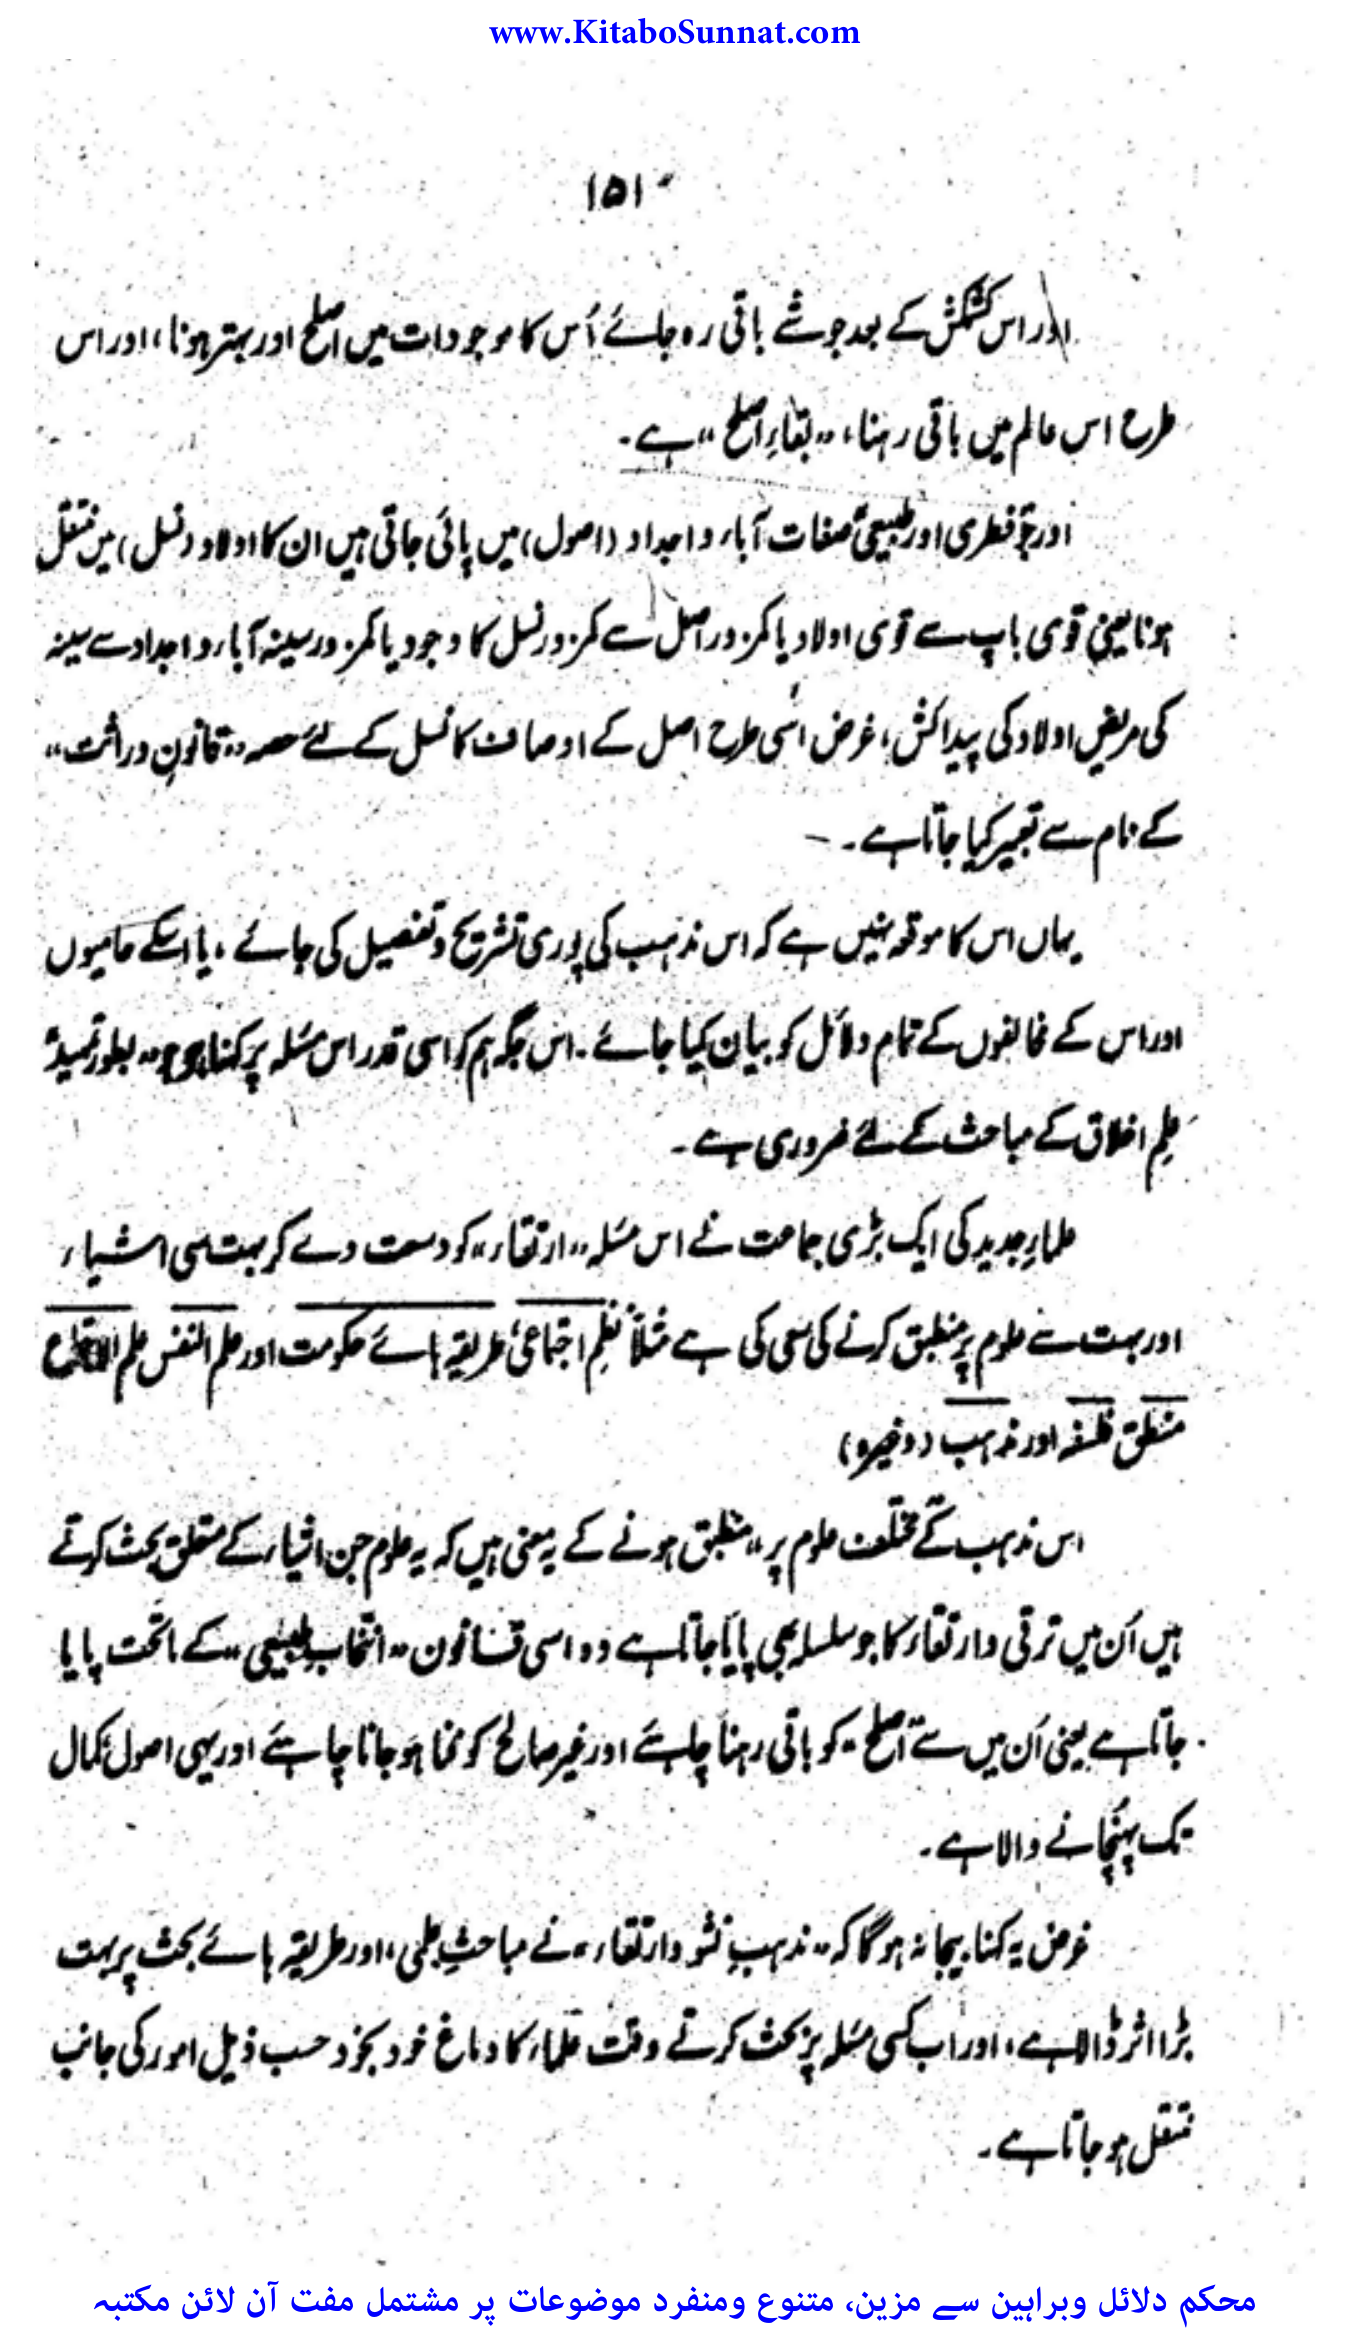 www.KitaboSunnat.com
۱۵۱
اور اس کشمکش کے بعد جو شے باقی رہ جائے اُس کا موجودات میں اصلح اور بہتر ہونا، اور اس
طرح اس عالم میں باقی رہنا، "بقاءِ اصلح" ہے۔
اور جو فطری اور طبیعی صفات آباء و اجداد (اصول) میں پائی جاتی ہیں ان کا اولاد (نسل) میں منتقل
ہونا یعنی قوی باپ سے قوی اولاد یا کمزور اصل سے کمزور نسل کا وجود یا کمزور سینہ آباء و اجداد سے سینہ
کی مریض اولاد کی پیدائش، غرض اسی طرح اصل کے اوصاف کا نسل کے لئے حصہ "قانونِ وراثت"
کے نام سے تعبیر کیا جاتا ہے۔
یہاں اس کا موقعہ نہیں ہے کہ اس مذہب کی پوری تشریح و تفصیل کی جائے، یا اسکے حامیوں
اور اس کے مخالفوں کے تمام دلائل کو بیان کیا جائے۔ اس جگہ ہم کو اسی قدر اس مسئلہ پر کہنا ہے جو "بطور تمہید"
علمِ اخلاق کے مباحث کے لئے ضروری ہے۔
علماءِ جدید کی ایک بڑی جماعت نے اس مسئلہ "ارتقاء" کو وسعت دے کر بہت سی اشیاء
اور بہت سے علوم پر منطبق کرنے کی سعی کی ہے مثلاً نظمِ اجتماعی، طریقہ ہائے حکومت اور علم النفس علم الاجتماع
منطق فلسفہ اور مذہب (وغیرہ)
اس مذہب کے مختلف علوم پر "منطبق ہونے کے یہ معنی ہیں کہ یہ علوم جن اشیاء کے متعلق بحث کرتے
ہیں اُن میں ترقی و ارتقاء کا جو سلسلہ بھی پایا جاتا ہے وہ اسی قانون "انتخاب طبیعی" کے ماتحت پایا
جاتا ہے یعنی اُن میں سے "اصلح" کو باقی رہنا چاہئے اور غیر صالح کو فنا ہو جانا چاہئے اور یہی اصول کمال
تک پہنچانے والا ہے۔
غرض یہ کہنا بیجا نہ ہوگا کہ "مذہبِ نشو و ارتقاء" نے مباحثِ علمی، اور طریقہ ہائے بحث پر بہت
بڑا اثر ڈالا ہے، اور اب کسی مسئلہ پر بحث کرتے وقت علماء کا دماغ خود بخود حسب ذیل امور کی جانب
منتقل ہو جاتا ہے۔
محکم دلائل وبراہین سے مزین، متنوع ومنفرد موضوعات پر مشتمل مفت آن لائن مکتبہ